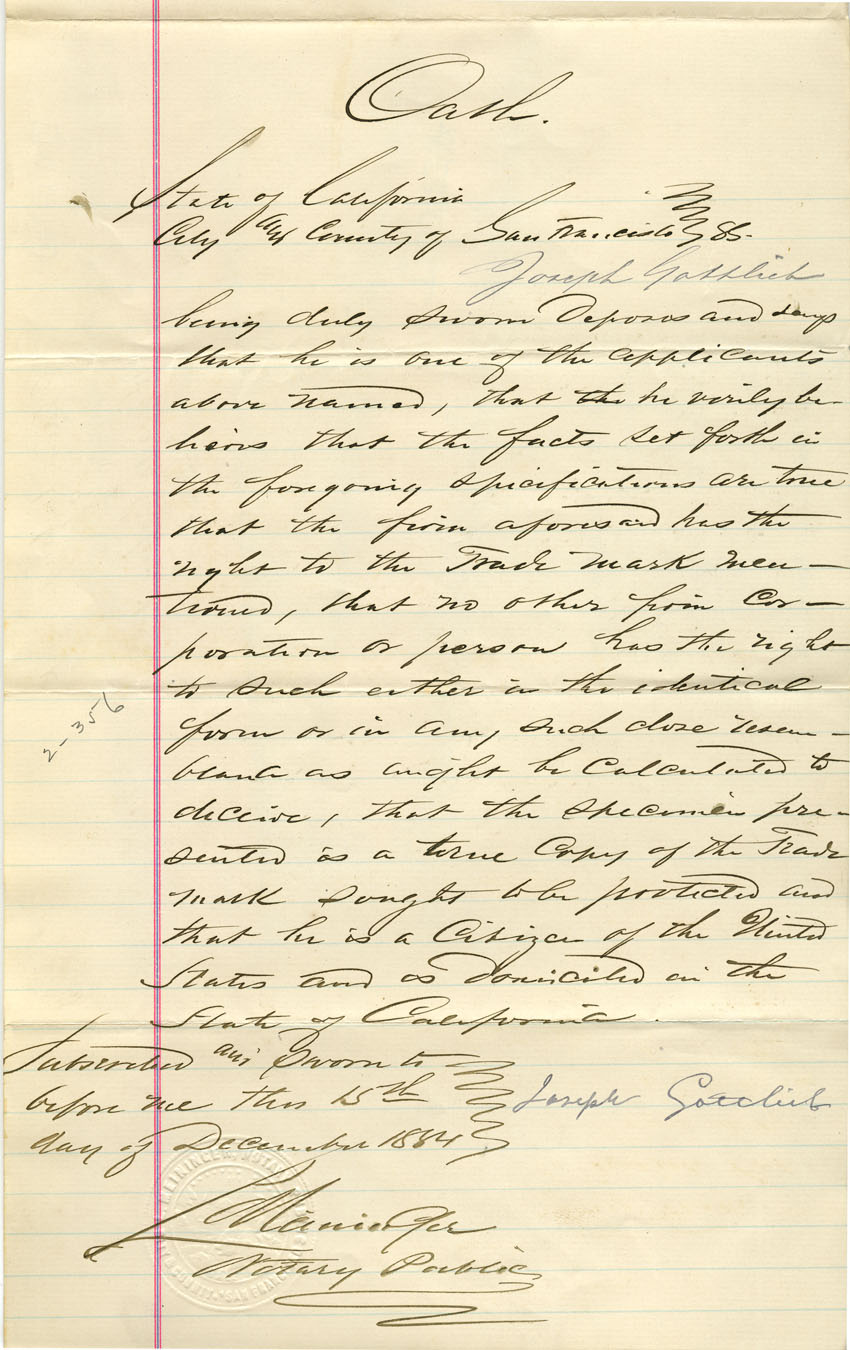 Oath.
State of California
City and County of San Francisco } SS.
Joseph Gottlieb
being duly sworn deposes and says
that he is one of the applicants
above named, that the he verily be-
lieves that the facts set forth in
the foregoing specifications are true
that the firm aforesaid has the
right to the Trade mark men-
tioned, that no other firm Cor-
poration or person has the right
to such either in the identical
form or in any such close resem-
blance as might be Calculated to
deceive, that the specimen pre-
sented is a true Copy of the Trade
mark sought to be protected and
that he is a Citizen of the United
States and is domiciled in the
State of California.
Subscribed and sworn to
before me this 15th
day of December 1884
Joseph Gottlieb
Notary Public
2-356